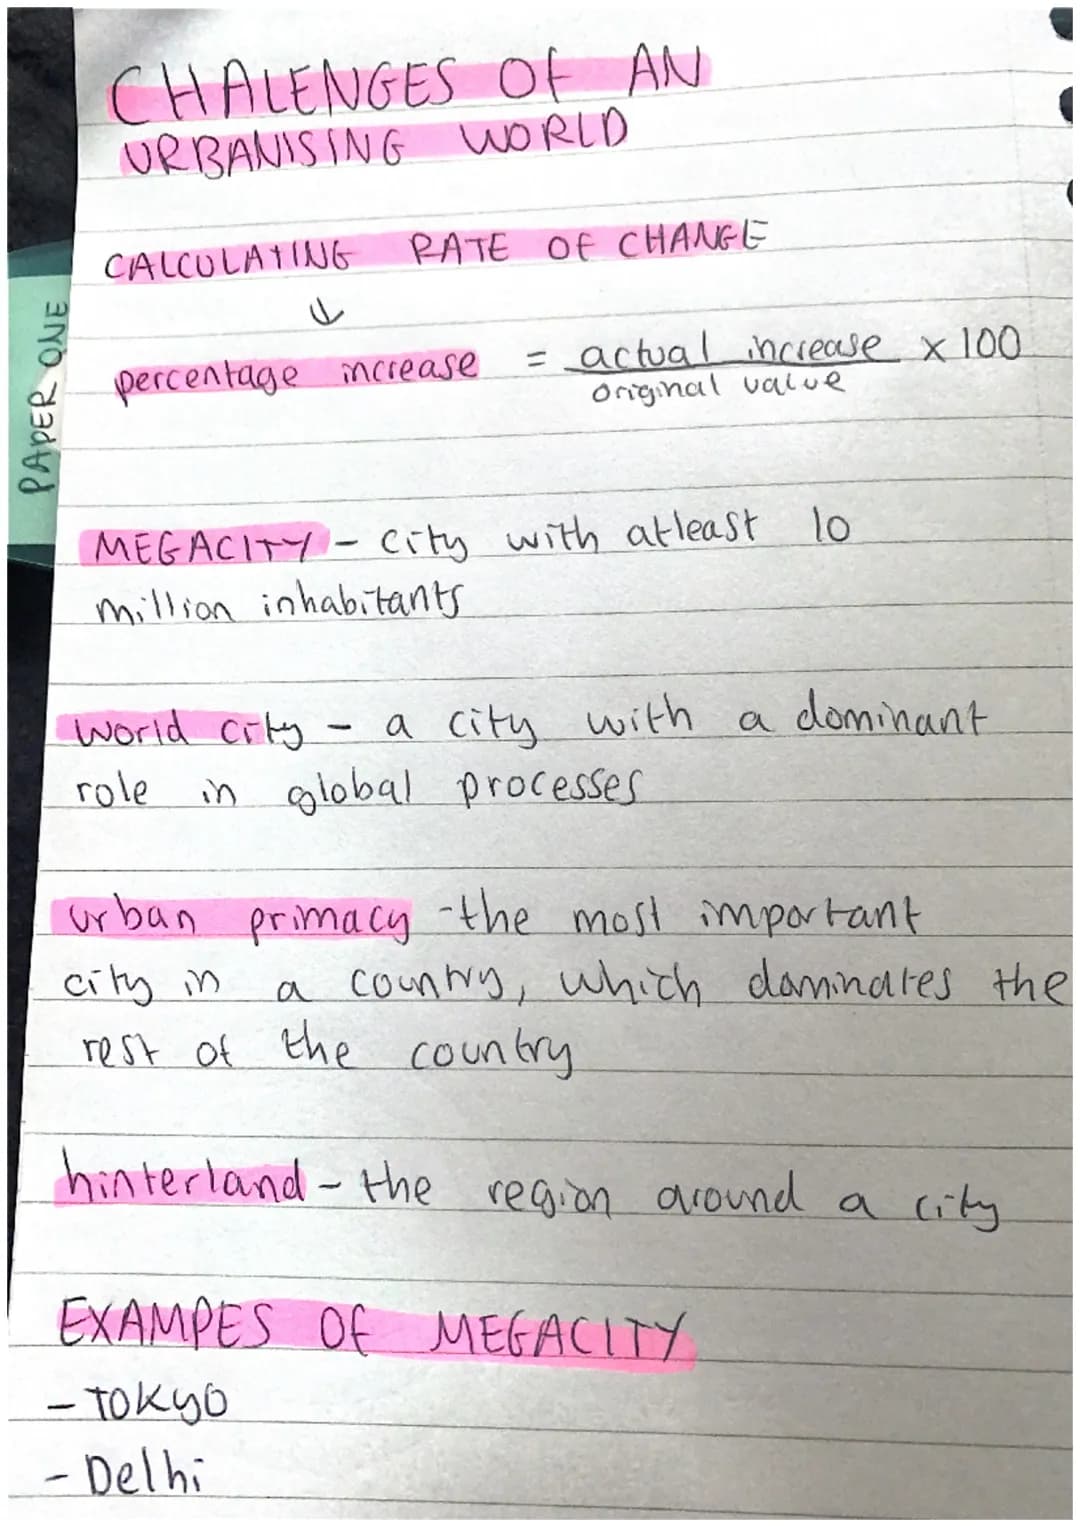 CHALENGES OF AN
URBANISING WORLD
CALCULATING RATE OF CHANGE
↓
percentage increase = actual increase x 100
original value
PAPER ONE
MEGACITY - city with atleast 10
million inhabitants
World city - a city with a dominant
role in global processes
urban primacy - the most important
city in a country, which dominates the
rest of the country
hinterland - the region around a city
EXAMPES OF MEGACITY
- TOKYO
- Delhi